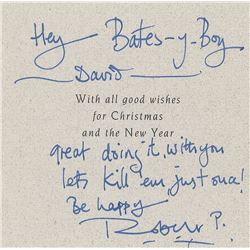 Hey Bates-y-Boy
David
With all good wishes
for Christmas
and the New Year
great doing it, with you
lets kill 'em, just one!
Be happy
Roger P.